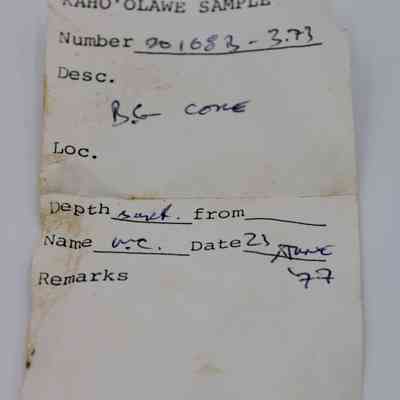 KAHO'OLAWE SAMPLE
Number 001683-3.73
Desc.
BG CORE
Loc.
Depth surf. from
Name Date 23 JUNE
Remarks '77